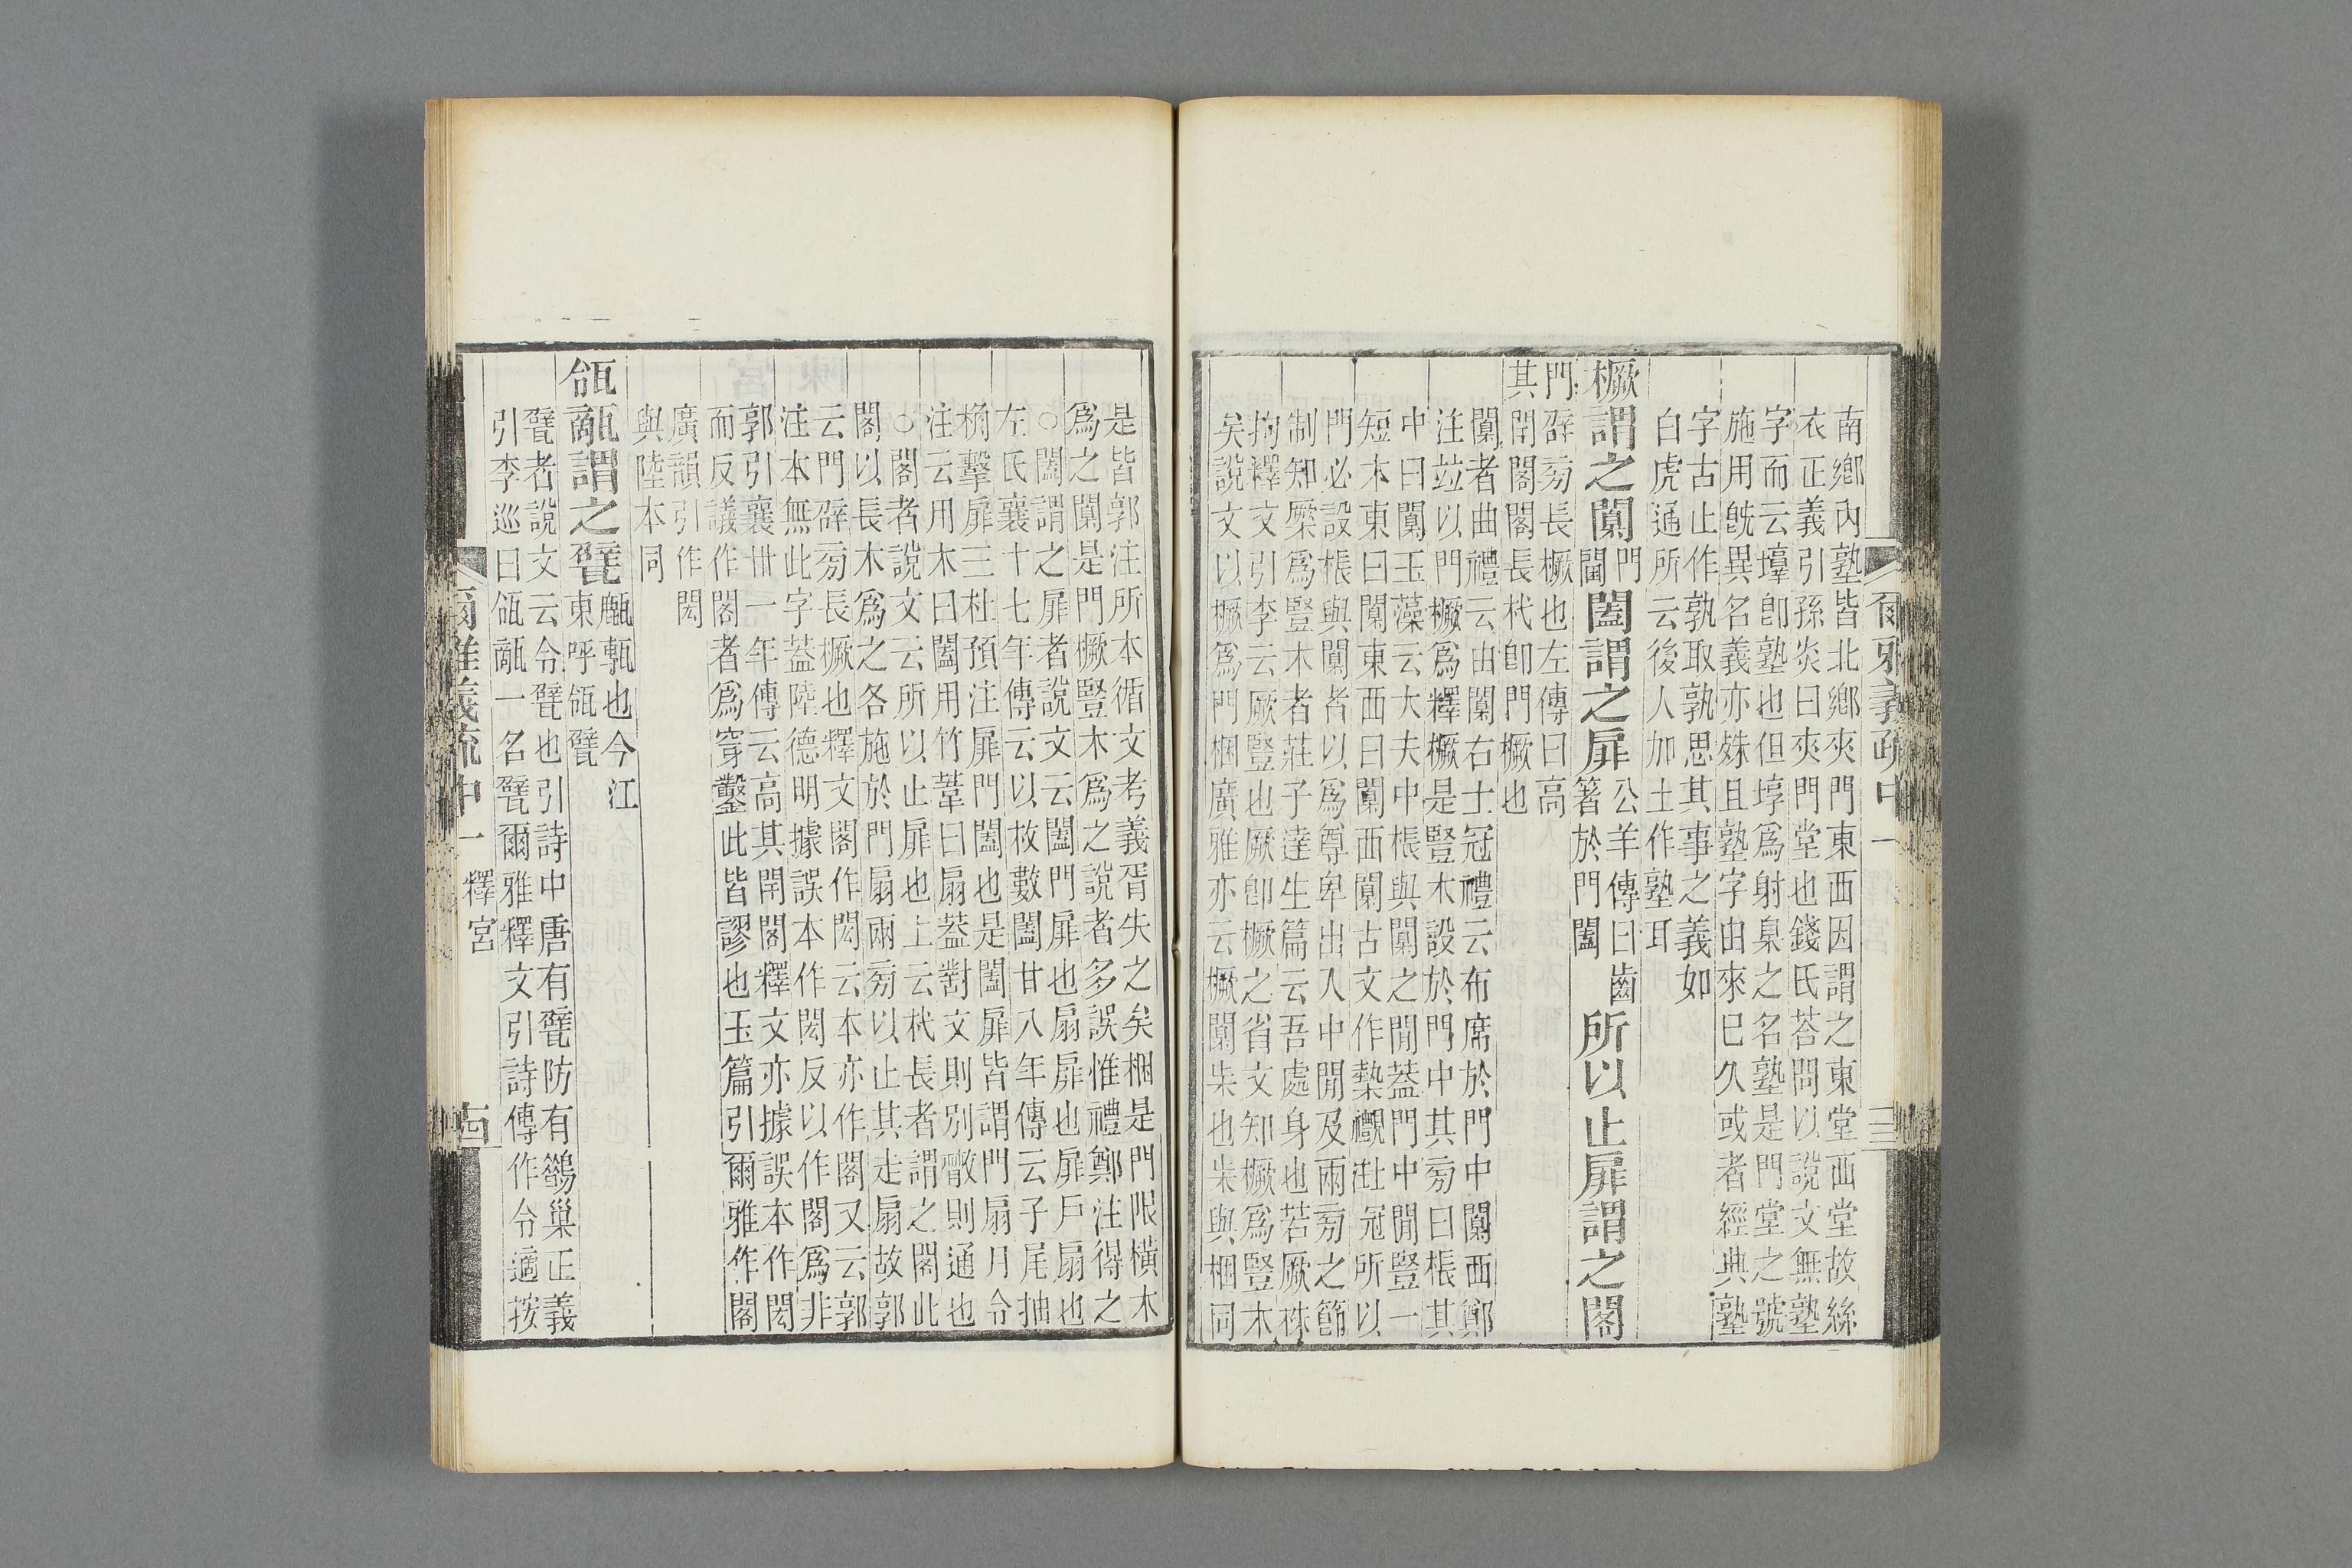 南鄉內塾皆北鄉夾門東西因謂之東堂西堂故絲
衣正義引孫炎曰夾門堂也錢氏荅問以說文無塾
字而云壔卽塾也但埻爲射臬之名塾是門堂之號
施用旣異名義亦殊且塾字由來已久或者經典塾
字古止作孰取孰思其事之義如
白虎通所云後人加土作塾耳
橛謂之闑門閫闔謂之扉公羊傳曰齒著於門闔所以止扉謂之閎
門辟旁長橛也左傳曰高
其閈閎閎長杙卽門橛也
闑者曲禮云由闑右士冠禮云布席於門中闑西鄭
注竝以門橛爲釋橛是豎木設於門中其旁曰棖其
中曰闑玉藻云大夫中棖與闑之閒蓋門中閒豎一
短木東曰闑東西曰闑西闑古文作槷觀士冠所以
門必設棖與闑者以爲尊卑出入中閒及兩旁之節
制知橜爲豎木者莊子達生篇云吾處身也若厥株
拘釋文引李云厥豎也厥卽橛之省文知橛爲豎木
矣說文以橛爲門梱廣雅亦云橛闑朱也朱與梱同
是皆郭注所本循文考義胥失之矣梱是門限橫木
爲之闑是門橛豎木爲之說者多誤惟禮鄭注得之
○闔謂之扉者說文云闔門扉也扇扉也扉戶扇也
左氏襄十七年傳云以枚數闔廿八年傳云子尾抽
桷擊扉三杜預注扉門闔也是闔扉皆謂門扇月令
注云用木曰闔用竹葦曰扇蓋對文則別散則通也
○閎者說文云所以止扉也上云杙長者謂之閣此
閣以長木爲之各施於門扇兩旁以止其走扇故郭
云門辟旁長橛也釋文閣作閎云本亦作閣又云郭
注本無此字蓋陸德明據誤本作閎反以作閣爲非
郭引襄卅一年傳云高其閈閣釋文亦據誤本作閎
而反議作閣者爲穿鑿此皆謬也玉篇引爾雅作閣
廣韻引作閎
與陸本同
瓴甋謂之甓甗甎也今江東呼瓴甓
甓者說文云令甓也引詩中唐有甓防有鷊巢正義
引李巡曰瓴甋一名甓爾雅釋文引詩傳作令適按
爾雅義疏中一 釋宮